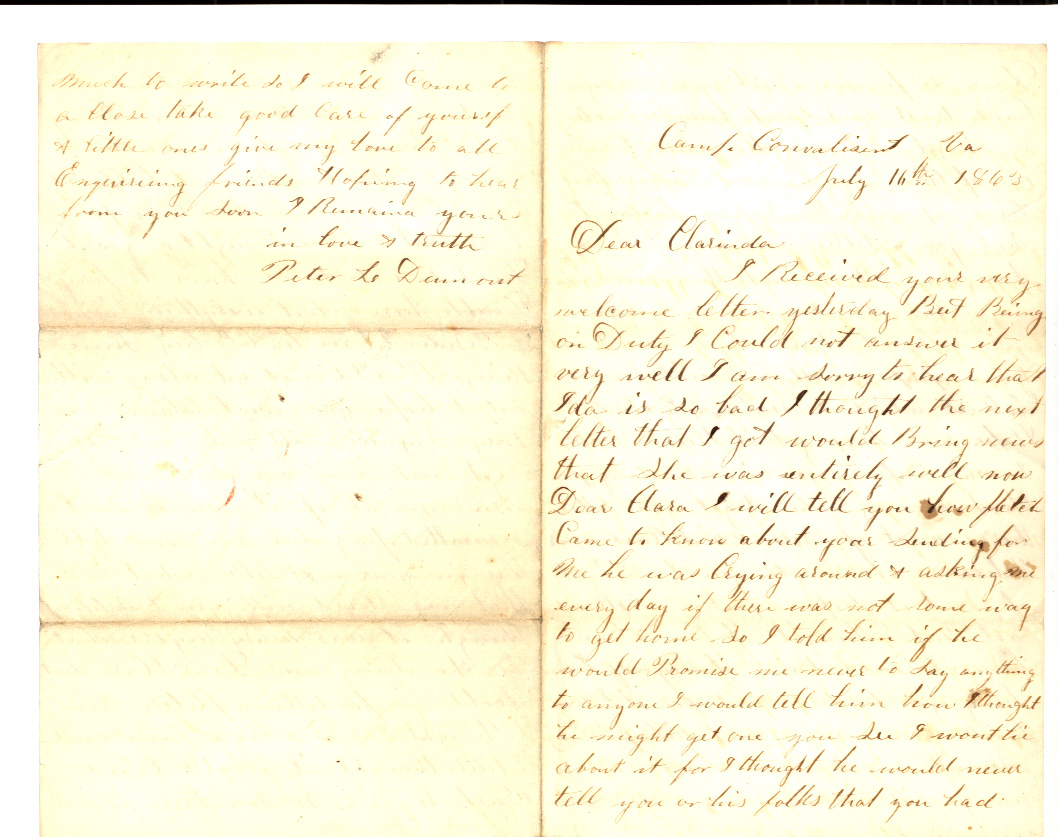 Much to write so I will Come to
a Close take good Care of yourself
& little ones give my love to all
Enquireing friends Hopeing to hear
from you soon I Remain yours
in love & truth
Peter L Dumont
Camp Convalisent Va
July 16th 1863
Dear Clarinda
I Received your very
welcome letter yesterday But Being
on Duty I Could not answer it
very well I am sorry to hear that
Ida is so bad I thought the next
letter that I got would Bring news
that she was entirely well now
Dear Clara I will tell you how
Came to know about your sending for
Me he was Crying around & asking me
every day if there was not some way
to get home so I told him if he
would Promise me never to say anything
to anyone I would tell him how I thought
he might get one you see I wont lie
about it for I thought he would never
tell you or his folks that you had